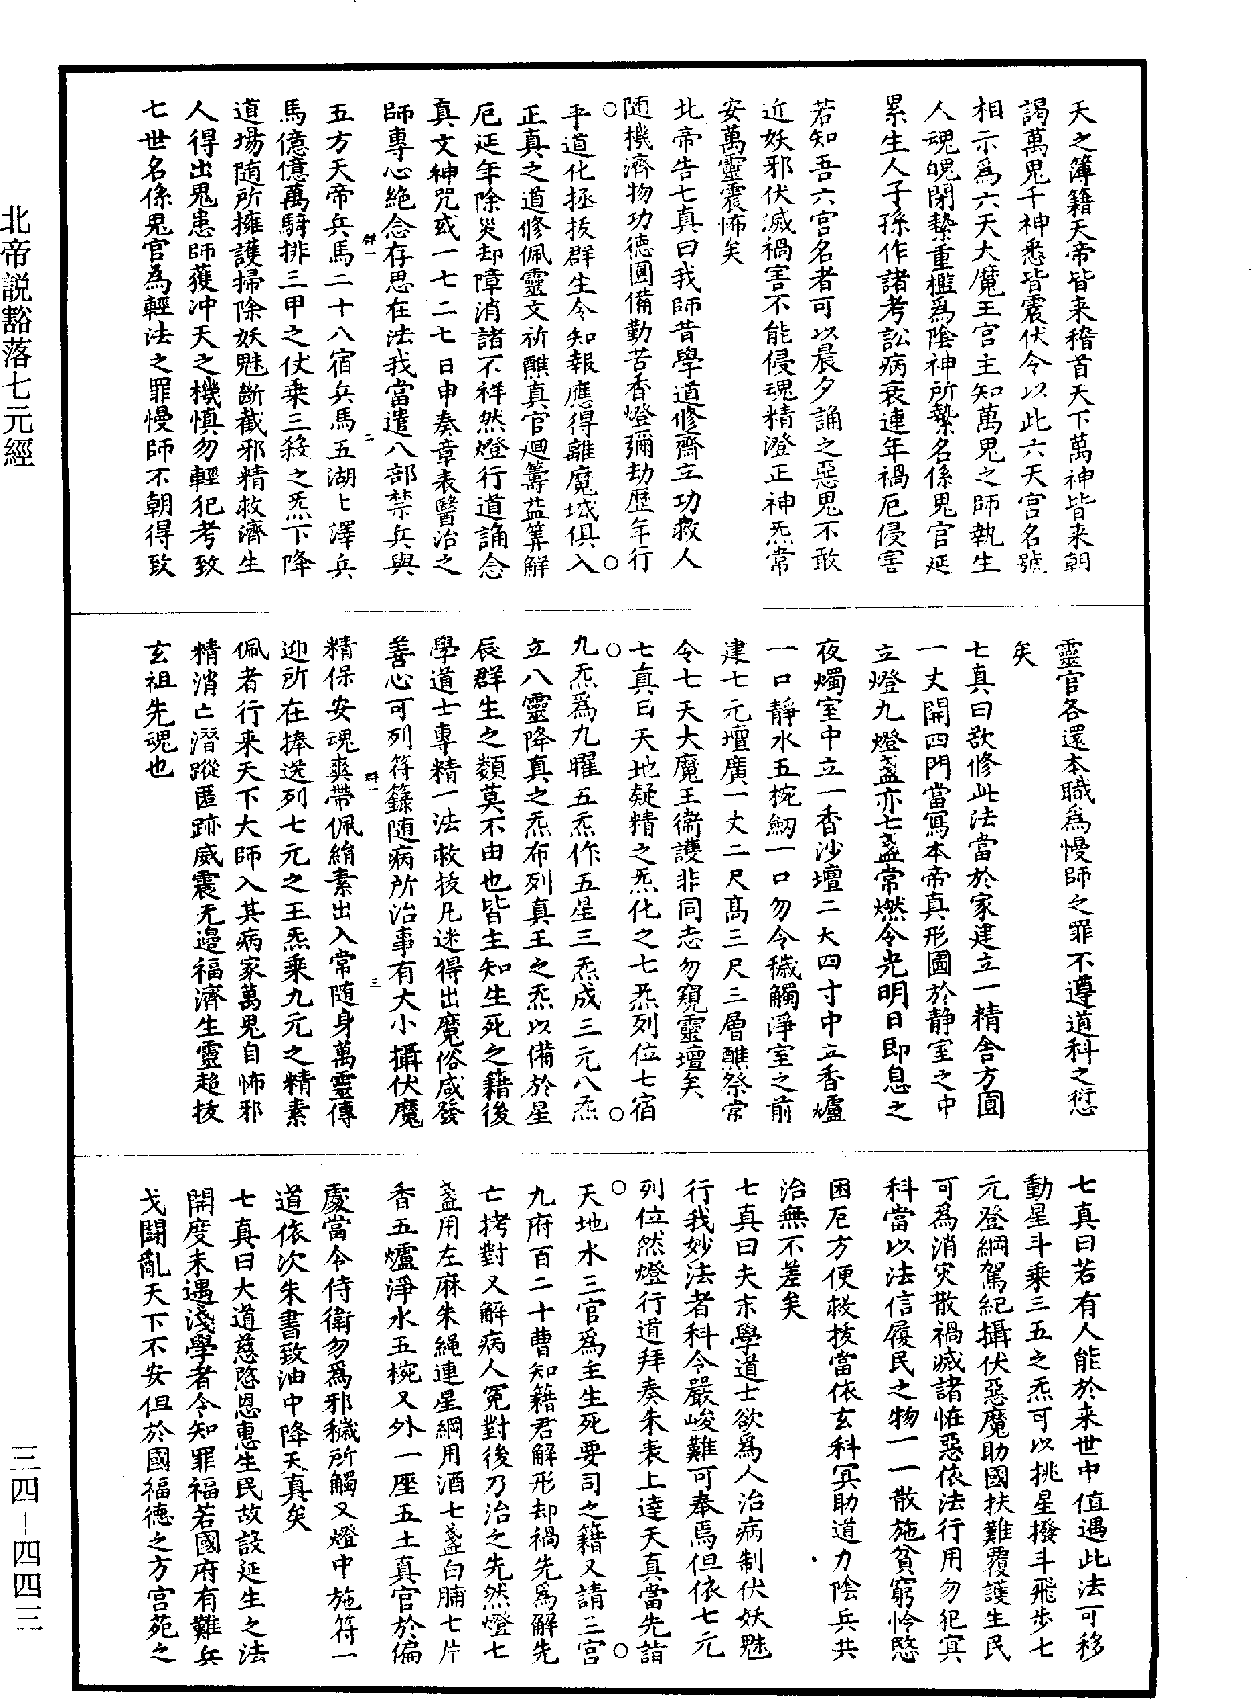 天之簿籍天帝皆来稽首天下萬神皆来朝
謁萬鬼千神悉皆震伏今以此六天宫名號
相示為六天大魔王宫主知萬鬼之師執生
人魂魄閉縶重檻爲陰神所縶名係鬼官延
累生人子孫作諸考訟病衰連年禍厄侵害
若知吾六宫名者可以晨夕誦之惡鬼不敢
近妖邪伏滅禍害不能侵魂精澄正神炁常
安萬靈震怖矣
北帝告七真曰我師昔學道修齋立功救人
随機濟物功德圓備勤苦香燈彌劫歷年行
平道化拯拔群生令知報應得離魔域俱入
正真之道修佩靈文祈醮真官迴籌益筭解
厄延年除災却障消諸不祥然燈行道誦念
真文神咒或一七二七日申奏章表醫治之
師專心絶念存思在法我當遣八部禁兵與
五方天帝兵馬二十八宿兵馬五湖七澤兵
馬億億萬騎排三甲之仗乗三殺之炁下降
道場随所擁護掃除妖魅斷截邪精救濟生
人得出鬼患師獲冲天之機慎勿輕犯考致
七世名係鬼官為輕法之罪慢師不朝得致
靈官各還本職為慢師之罪不遵道科之愆
矣
七真曰欲修此法當於家建立一精舎方圓
一丈開四門當寫本帝真形圖於静室之中
立燈九燈盞亦七盞常燃令光明日即息之
夜燭室中立一香沙壇二大四寸中立香爐
一口靜水五椀釰一口勿令穢觸淨室之前
建七元壇廣一丈二尺髙三尺三層醮祭常
令七天大魔王衛護非同志勿窺靈壇矣
七真曰天地疑精之炁化之七炁列位七宿
九炁爲九曜五炁作五星三炁成三元八炁
立八靈降真之炁布列真王之炁以備於星
辰群生之類莫不由也皆主知生死之籍後
學道士專精一法救拔凡迷得出魔俗咸發
善心可列符籙随病所治事有大小攝伏魔
精保安魂爽帶佩綃素出入常随身萬靈傳
迎所在捧送列七元之王炁乗九元之精素
佩者行来天下大師入其病家萬鬼自怖邪
精消亡潛蹤匿跡威震无邊福濟生靈超拔
玄祖先魂也
七真曰若有人能於来世中值遇此法可移
動星斗乗三五之炁可以挑星撥斗飛歩七
元登綱駕紀攝伏惡魔助國扶難覆護生民
可為消灾散禍滅諸怪惡依法行用勿犯冥
科當以法信履民之物一一散施貧窮怜愍
困厄方便救拔當依玄科冥助道力陰兵共
治無不差矣
七真曰夫末學道士欲爲人治病制伏妖魅
行我妙法者科令嚴峻難可奉焉但依七元
列位然燈行道拜奏朱表上達天真當先詣
天地水三官爲主生死要司之籍又請三宫
九府百二十曹知籍君解形却禍先爲解先
亡拷對又解病人冤對後乃治之先然燈七
盞用左麻朱繩連星綱用酒七盞白脯七片
香五爐淨水五椀又外一座五土真官於偏
處當令侍衛勿爲邪穢所觸又燈中施符一
道依次朱書致油中降天真矣
七真曰大道慈愍恩惠生民故設延生之法
開度未遇淺學者令知罪福若國府有難兵
戈閙亂天下不安但於國福德之方宫苑之
北帝説豁落七元經
三四-四四三